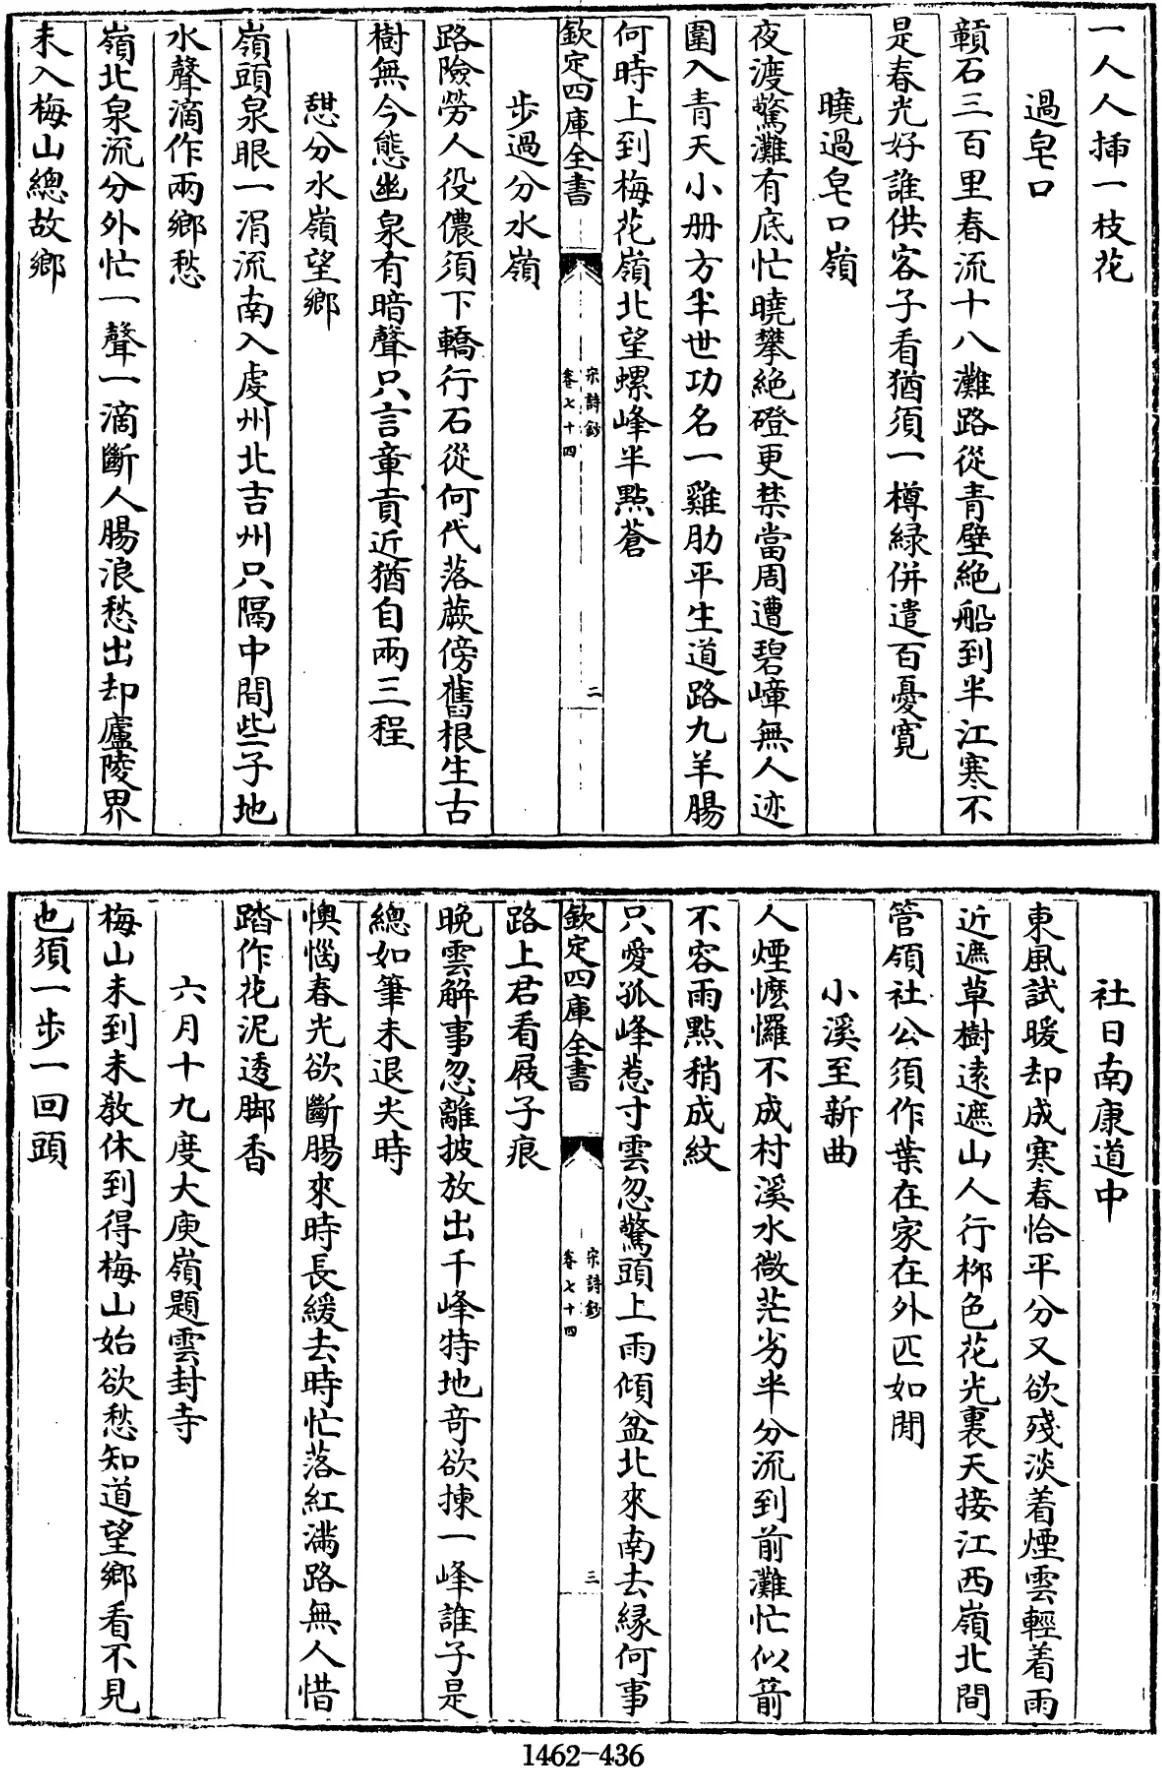 一人人挿一枝花
過皂口
贛石三百里春流十八灘路從青壁絶船到半江寒不
是春光好誰供客子看猶須一樽緑併遣百憂寛
曉過皂口嶺
夜渡驚灘有底忙曉攀絶磴更禁當周遭碧嶂無人迹
圍入青天小册方半世功名一雞肋平生道路九羊腸
何時上到梅花嶺北望螺峰半點蒼
欽定四庫全書
宋詩鈔
卷七十四
二
步過分水嶺
路險勞人役儂須下轎行石從何代落蕨傍舊根生古
樹無今態幽泉有暗聲只言章貢近猶自兩三程
憇分水嶺望鄉
嶺頭泉眼一涓流南入虔州北吉州只隔中間些子地
水聲滴作兩鄉愁
嶺北泉流分外忙一聲一滴斷人腸浪愁出却廬陵界
未入梅山總故鄉
社日南康道中
東風試暖却成寒春恰平分又欲殘淡着煙雲輕着雨
近遮草樹遠遮山人行栁色花光裏天接江西嶺北間
管領社公須作葉在家在外匹如閒
小溪至新曲
人煙懡㦬不成村溪水微茫劣半分流到前灘忙似箭
不容雨點稍成紋
只愛孤峰惹寸雲忽驚頭上雨傾盆北來南去縁何事
欽定四庫全書
宋詩鈔
卷七十四
三
路上君看屐子痕
晩雲解事忽離披放出千峰特地竒欲揀一峰誰子是
總如筆未退尖時
懊惱春光欲斷腸來時長緩去時忙落紅滿路無人惜
踏作花泥透脚香
六月十九度大庾嶺題雲封寺
梅山未到未教休到得梅山始欲愁知道望鄉看不見
也須一歩一回頭
1462-436